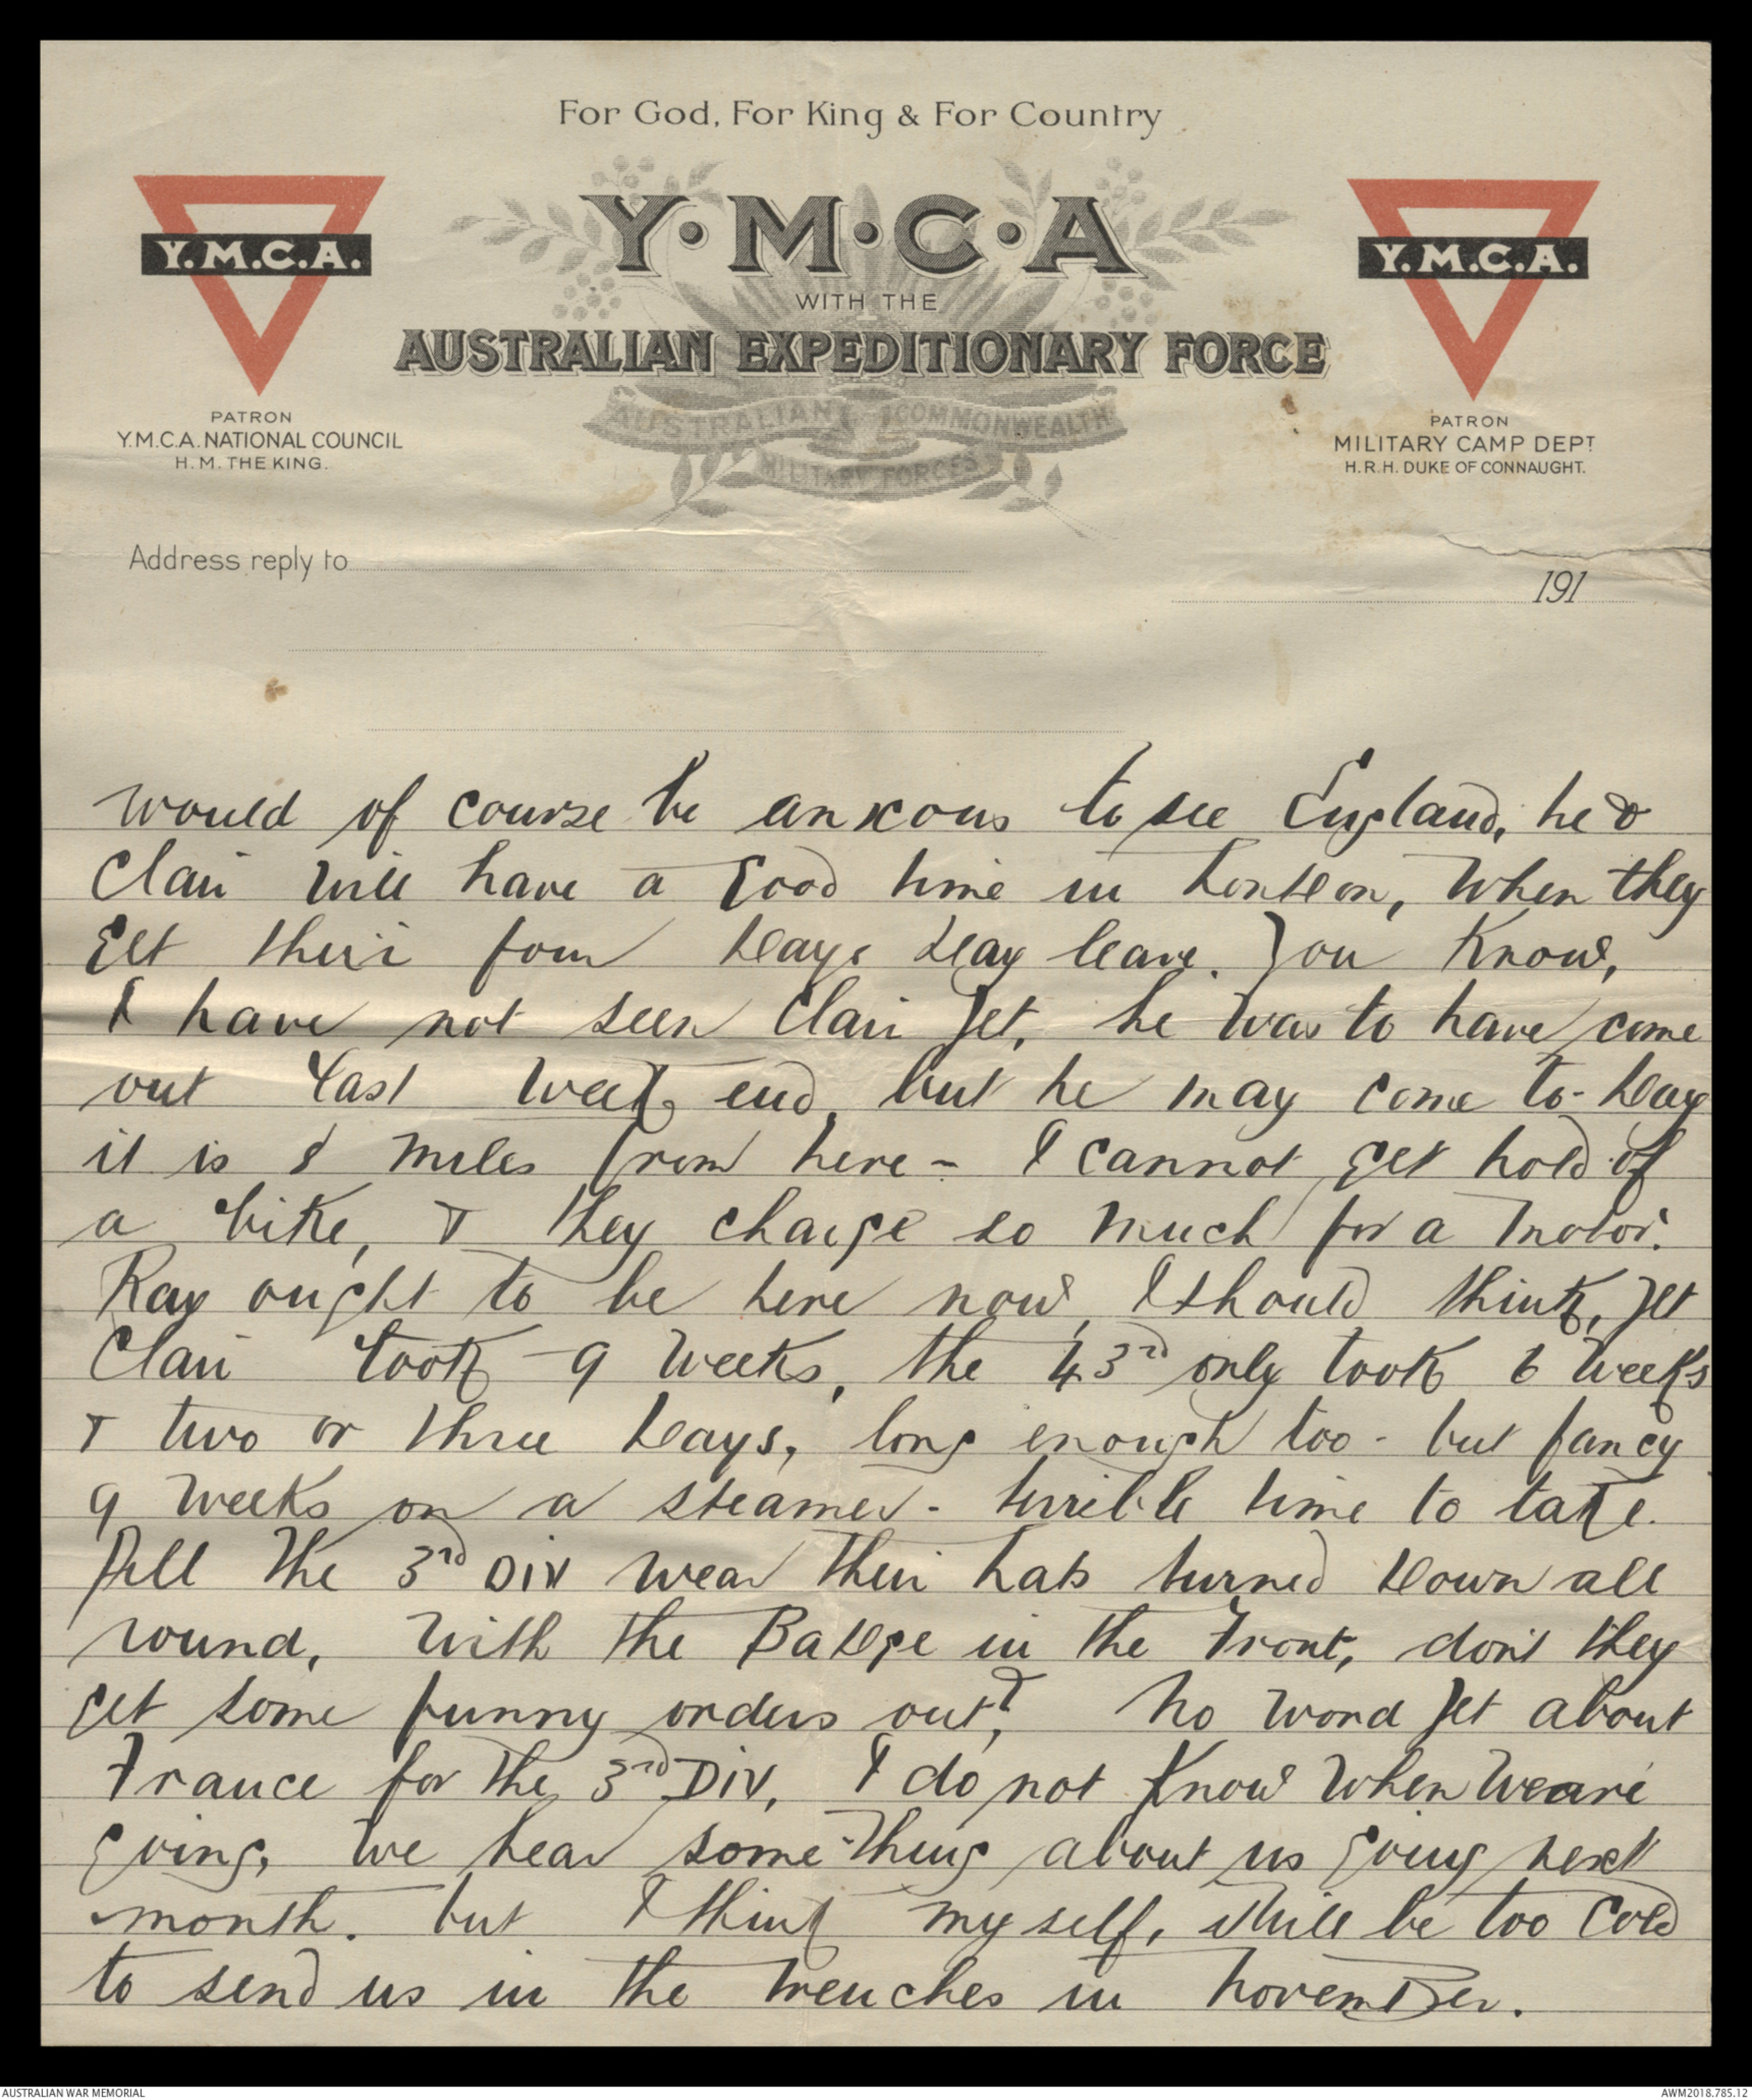 For God, For King & For Country
Y.M.C.A.
Y·M·C·A
Y.M.C.A.
WITH THE
AUSTRALIAN EXPEDITIONARY FORCE
AUSTRALIAN COMMONWEALTH
MILITARY FORCES
PATRON
Y.M.C.A. NATIONAL COUNCIL
H.M. THE KING.
PATRON
MILITARY CAMP DEPT
H.R.H. DUKE OF CONNAUGHT.
Address reply to
191
would of course be anxcous to see England, he &
Clair will have a Good time in London, When they
Get their four days day leave. You Know,
I have not seen Clair Yet, he was to have come
out last week end, but he may come to-day
it is 8 miles from here - I cannot get hold of
a bike, & they charge so much for a Motor.
Ray ought to be here now, I should think, Yet
Clair took 9 weeks, the 43rd only took 6 weeks
& two or three days, long enough too - but fancy
9 weeks on a steamer - terrible time to take.
All the 3rd Div wear their hats turned down all
round, with the Badge in the Front, don't they
get some funny orders out? No word Yet about
France for the 3rd Div, I do not Know When we are
Going, we hear some-thing about us Going next
month. but I think my self, it will be too Cold
to send us in the trenches in November.
AUSTRALIAN WAR MEMORIAL
AWM2018.785.12